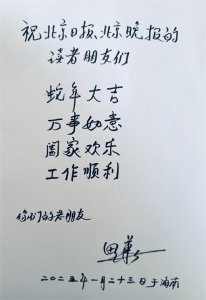 祝北京日报、北京晚报的
读者朋友们
蛇年大吉
万事如意
阖家欢乐
工作顺利
你们的老朋友
田华
二〇二五年一月二十三日于海南